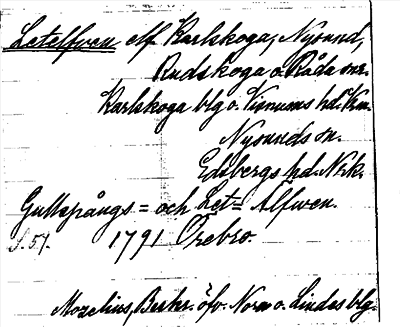 Letelfven elf Karlskoga, Nysund,
Rudskoga o. Råda snr.
Karlskoga blg o. Visnums hd. Vrm.
Nysunds sn.
Edsbergs hd. Nrk.
Gullspångs = och Let = Älfwen.
S. 51. 1791 Örebro.
Mozelius, Beskr. öfv. Nora o. Lindes blg.